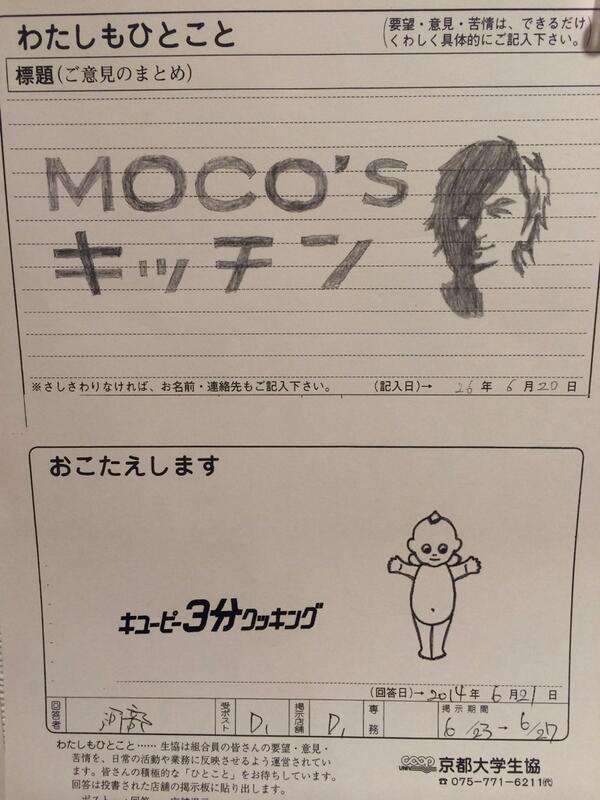 わたしもひとこと
(要望・意見・苦情は、できるだけ
くわしく具体的にご記入下さい。)
標題(ご意見のまとめ)
MOCO'S
キッチン
※さしさわりなければ、お名前・連絡先もご記入下さい。 (記入日)→ 26年6月20日
おこたえします
キユーピー3分クッキング
(回答日)→2014年6月21日
回答者 受ポスト D1 掲示店舗 D1 専務 掲示期間
6/23→6/27
わたしもひとこと…… 生協は組合員の皆さんの要望・意見・
苦情を、日常の活動や業務に反映させるよう運営されてい
ます。皆さんの積極的な「ひとこと」をお待ちしています。
回答は投書された店舗の掲示板に貼り出します。
UNIV COOP 京都大学生協
☎075-771-6211㈹